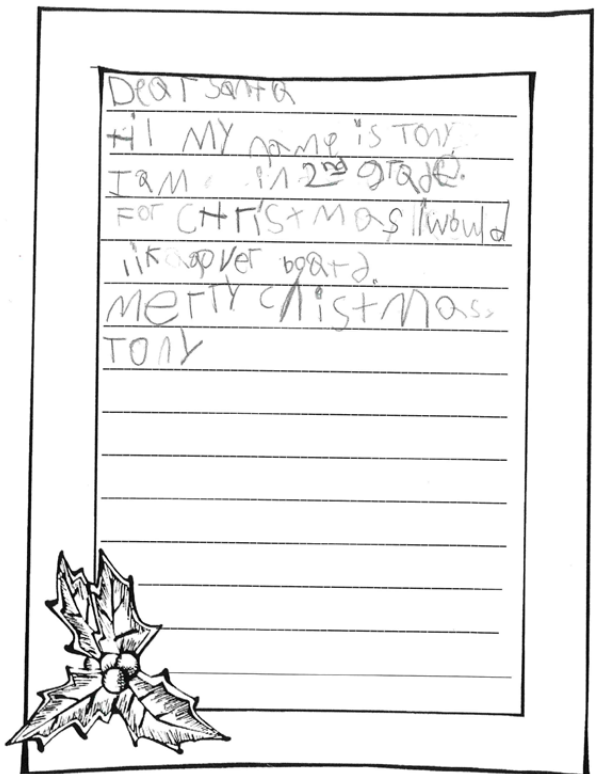 Dear Santa
Hi MY name is TONY
I am in 2nd grade.
For CHristmas I would
lik over board.
merry chistmas.
TONY